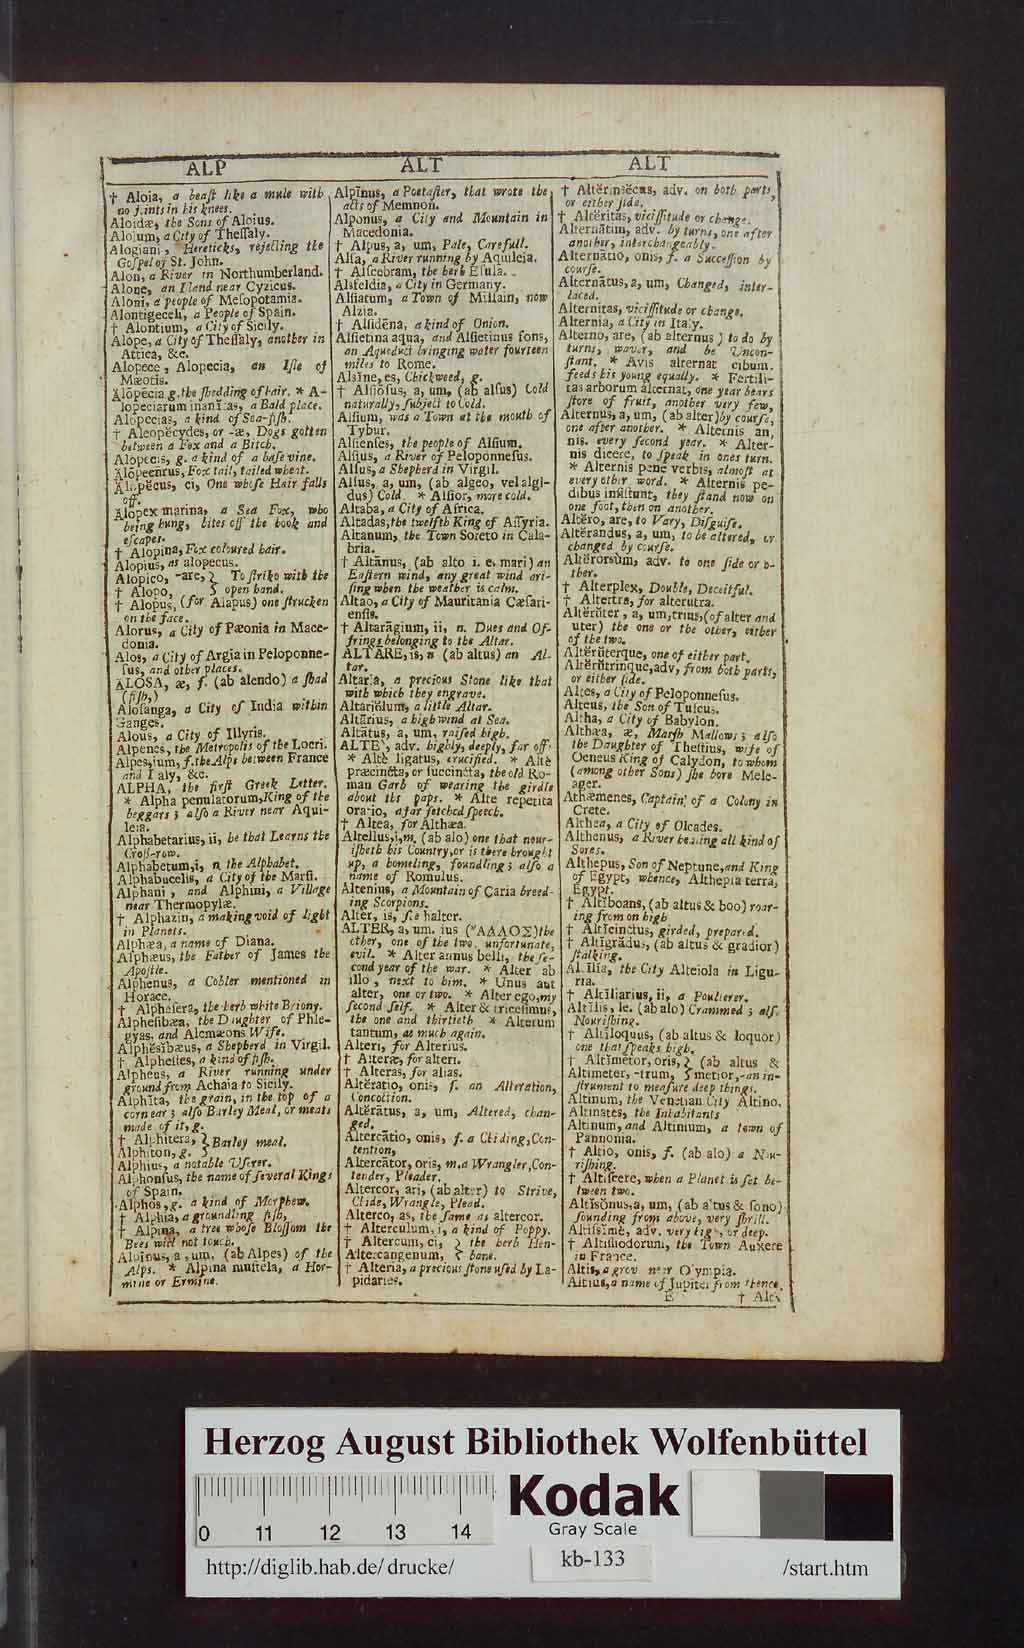 ALP
† Aloia, a beaſt like a mule with
no joints in his knees.
Aloidæ, the Sons of Aloius.
Aloium, a City of Theſſaly.
Alogiani, Hereticks, rejecting the
Goſpel of St. John.
Alon, a River in Northumberland.
Alone, an Iland near Cyzicus.
Aloni, a people of Meſopotamia.
Alontigeceli, a People of Spain.
† Alontium, a City of Sicily.
Alope, a City of Theſſaly, another in
Attica, &c.
Alopece, Alopecia, an Iſle of
Mæotis.
Ălōpĕcia g. the ſhedding of hair. * A-
lopeciarum inanĭtas, a Bald place.
Alopecias, a kind of Sea-fiſh.
† Aleopĕcydes, or -æ, Dogs gotten
between a Fox and a Bitch.
Alopecis, g. a kind of a baſe vine.
Ălŏpeenrus, Fox tail, tailed wheat.
Ălōpĕcus, ci, One whoſe Hair falls
off.
Ălopex marina, a Sea Fox, who
being hung, bites off the hook and
eſcapes.
† Alopina, Fox coloured hair.
Alopius, as alopecus.
Alopico, -are, } To ſtrike with the
† Alopo, } open hand.
† Alopus, (for Alapus) one ſtrucken
on the face.
Alorus, a City of Pæonia in Mace-
donia.
Alos, a City of Argia in Peloponne-
ſus, and other places.
ĂLOSA, æ, f. (ab alendo) a ſhad
(fiſh,)
Aloſanga, a City of India within
Ganges.
Alous, a City of Illyris.
Alpenes, the Metropolis of the Locri.
Alpes, ium, f. the Alps between France
and Italy, &c.
ALPHA, the firſt Greek Letter.
* Alpha penulatorum, King of the
beggars; alſo a River near Aqui-
leia.
Alphabetarius, ii, he that Learns the
Croſs-row.
Alphabetum, i, n. the Alphabet.
Alphabucelis, a City of the Marſi.
Alphani, and Alphini, a Village
near Thermopylæ.
† Alphazin, a making void of light
in Planets.
Alphæa, a name of Diana.
Alphæus, the Father of James the
Apoſtle.
Alphenus, a Cobler mentioned in
Horace.
† Alpheſera, the herb white Briony.
Alpheſibæa, the Daughter of Phle-
gyas, and Alcmæons Wife.
Alphĕsĭbæus, a Shepherd in Virgil.
† Alpheſtes, a kind of fiſh.
Alpheus, a River running under
ground from Achaia to Sicily.
Alphĭta, the grain, in the top of a
corn ear; alſo Barley Meal, or meats
made of it, g.
† Alphitera, } Barley meal.
Alphiton, g. }
Alphius, a notable Uſerer.
Alphonſus, the name of ſeveral Kings
of Spain.
Alphos, g. a kind of Morphew.
† Alphia, a groundling fiſh,
† Alpina, a tree whoſe Bloſſom the
Bees will not touch.
Alpinus, a, um, (ab Alpes) of the
Alps. * Alpina muſtela, a Hor-
mine or Ermine.
ALT
Alpīnus, a Poetaſter, that wrote the
acts of Memnon.
Alponus, a City and Mountain in
Macedonia.
† Alpus, a, um, Pale, Carefull.
Alſa, a River running by Aquileia.
† Alſcebram, the herb Eſula.
Alsfeldia, a City in Germany.
Alſiatum, a Town of Millain, now
Alzia.
† Alſidēna, a kind of Onion.
Alſietina aqua, and Alſietinus fons,
an Aqueduct bringing water fourteen
miles to Rome.
Alsīne, es, Chickweed, g.
† Alſiōſus, a, um, (ab alſus) Cold
naturally, ſubject to Cold.
Alſium, was a Town at the mouth of
Tybur.
Alſienſes, the people of Alſium.
Alſius, a River of Peloponneſus.
Alſus, a Shepherd in Virgil.
Alſus, a, um, (ab algeo, vel algi-
dus) Cold. * Alſior, more cold.
Altaba, a City of Africa.
Altadas, the twelfth King of Aſſyria.
Altanum, the Town Soreto in Cala-
bria.
† Altānus, (ab alto i. e. mari) an
Eaſtern wind, any great wind ari-
ſing when the weather is calm.
Altao, a City of Mauritania Cæſari-
enſis.
† Altarāgium, ii, n. Dues and Of-
frings belonging to the Altar.
ALTARE, is, n (ab altus) an Al-
tar.
Altaria, a precious Stone like that
with which they engrave.
Altariŏlum, a little Altar.
Altārius, a high wind at Sea.
Altātus, a, um, raiſed high.
ALTE, adv. highly, deeply, far off.
* Altè ligatus, crucified. * Altè
præcincta, or ſuccincta, the old Ro-
man Garb of wearing the girdle
about the paps. * Alte repetita
oratio, a far fetched ſpeech.
† Altea, for Althæa.
Altellus, i, m. (ab alo) one that nour-
iſheth his Country, or is there brought
up, a homeling, foundling; alſo a
name of Romulus.
Altenius, a Mountain of Caria breed-
ing Scorpions.
Alter, is, f. e halter.
ALTER, a, um. ius (ΑΛΛΟΣ) the
other, one of the two. unfortunate,
evil. * Alter annus belli, the ſe-
cond year of the war. * Alter ab
illo, next to him. * Unus aut
alter, one or two. * Alter ego, my
ſecond ſelf. * Alter & triceſimus,
the one and thirtieth * Alterum
tantum, as much again.
Alteri, for Alterius.
† Alteræ, for alteri.
† Alteras, for alias.
Altĕratio, onis, f. an Alteration,
Concoction.
Altĕrātus, a, um, Altered, chan-
ged.
Altercātio, onis, f. a Chiding, Con-
tention,
Altercātor, oris, m. a Wrangler, Con-
tender, Pleader.
Altercor, ari, (ab alter) to Strive,
Chide, Wrangle, Plead.
Alterco, as, the ſame as altercor.
† Alterculum, i, a kind of Poppy.
† Altercum, ci, } the herb Hen-
Altercangenum, } bane.
† Alteria, a precious ſtone uſed by La-
pidaries.
ALT
† Altĕrinsĕcus, adv. on both parts,
or either ſide.
† Altĕrĭtas, viciſſitude or change.
Alternātim, adv. by turns, one after
another, interchangeably.
Alternātio, onis, f. a Succeſſion by
courſe.
Alternātus, a, um, Changed, inter-
laced.
Alternitas, viciſſitude or change.
Alternia, a City in Italy.
Alterno, are, (ab alternus) to do by
turns, waver, and be Uncon-
ſtant. * Avis alternat cibum.
feeds his young equally. * Fertili-
tas arborum alternat, one year bears
ſtore of fruit, another very few,
Alternus, a, um, (ab alter) by courſe,
one after another. * Alternis an,
nis. every ſecond year. * Alter-
nis dicere, to ſpeak in ones turn.
* Alternis penè verbis, almoſt at
every other word. * Alternis pe-
dibus inſiſtunt, they ſtand now on
one foot, then on another.
Altĕro, are, to Vary, Diſguiſe.
Altĕrandus, a, um, to be altered, or
changed by courſe.
Altĕrorsùm, adv. to one ſide or o-
ther.
† Alterplex, Double, Deceitful.
† Altertra, for alterutra.
Altĕrŭter, a, um, trius, (of alter and
uter) the one or the other, either
of the two.
Altĕrŭterque, one of either part.
Altĕrŭtrinque, adv, from both parts,
or either ſide.
Altes, a City of Peloponneſus.
Alteus, the Son of Tuſcus.
Altha, a City of Babylon.
Althæa, æ, Marſh Mallows; alſo
the Daughter of Theſtius, wife of
Oeneus King of Calydon, to whom
(among other Sons) ſhe bore Mele-
ager.
Althæmenes, Captain of a Colony in
Crete.
Althea, a City of Olcades.
Althenus, a River healing all kind of
Sores.
Althepus, Son of Neptune, and King
of Egypt, whence, Althepia terra,
Egypt.
† Altĭboans, (ab altus & boo) roar-
ing from on high
† Altĭcinctus, girded, prepared.
† Altĭgrădus, (ab altus & gradior)
ſtalking.
Altilia, the City Alteiola in Ligu-
ria.
† Altĭliarius, ii, a Poulterer.
Altĭlis, le. (ab alo) Crammed; alſo
Nouriſhing.
† Altĭloquus, (ab altus & loquor)
one that ſpeaks high.
† Altĭmetor, oris, } (ab altus &
Altimeter, -trum, } metior, - an in-
ſtrument to meaſure deep things.
Altinum, the Venetian City Altino.
Altinates, the Inhabitants
Altinum, and Altinium, a town of
Pannonia.
† Altio, onis, f. (ab alo) a Nou-
riſhing.
† Altiſcere, when a Planet is ſet be-
tween two.
Altĭsŏnus, a, um, (ab altus & ſono)
ſounding from above, very ſhrill.
Altiſſimè, adv. very high, or deep.
† Altiſſiodorum, the Town Auxere
in France.
Altis, a grov near Olympia.
Altius, a name of Jupiter from thence.
E † Alti
Herzog August Bibliothek Wolfenbüttel
0 11 12 13 14
Kodak
Gray Scale
kb-133
http://diglib.hab.de/drucke/ /start.htm